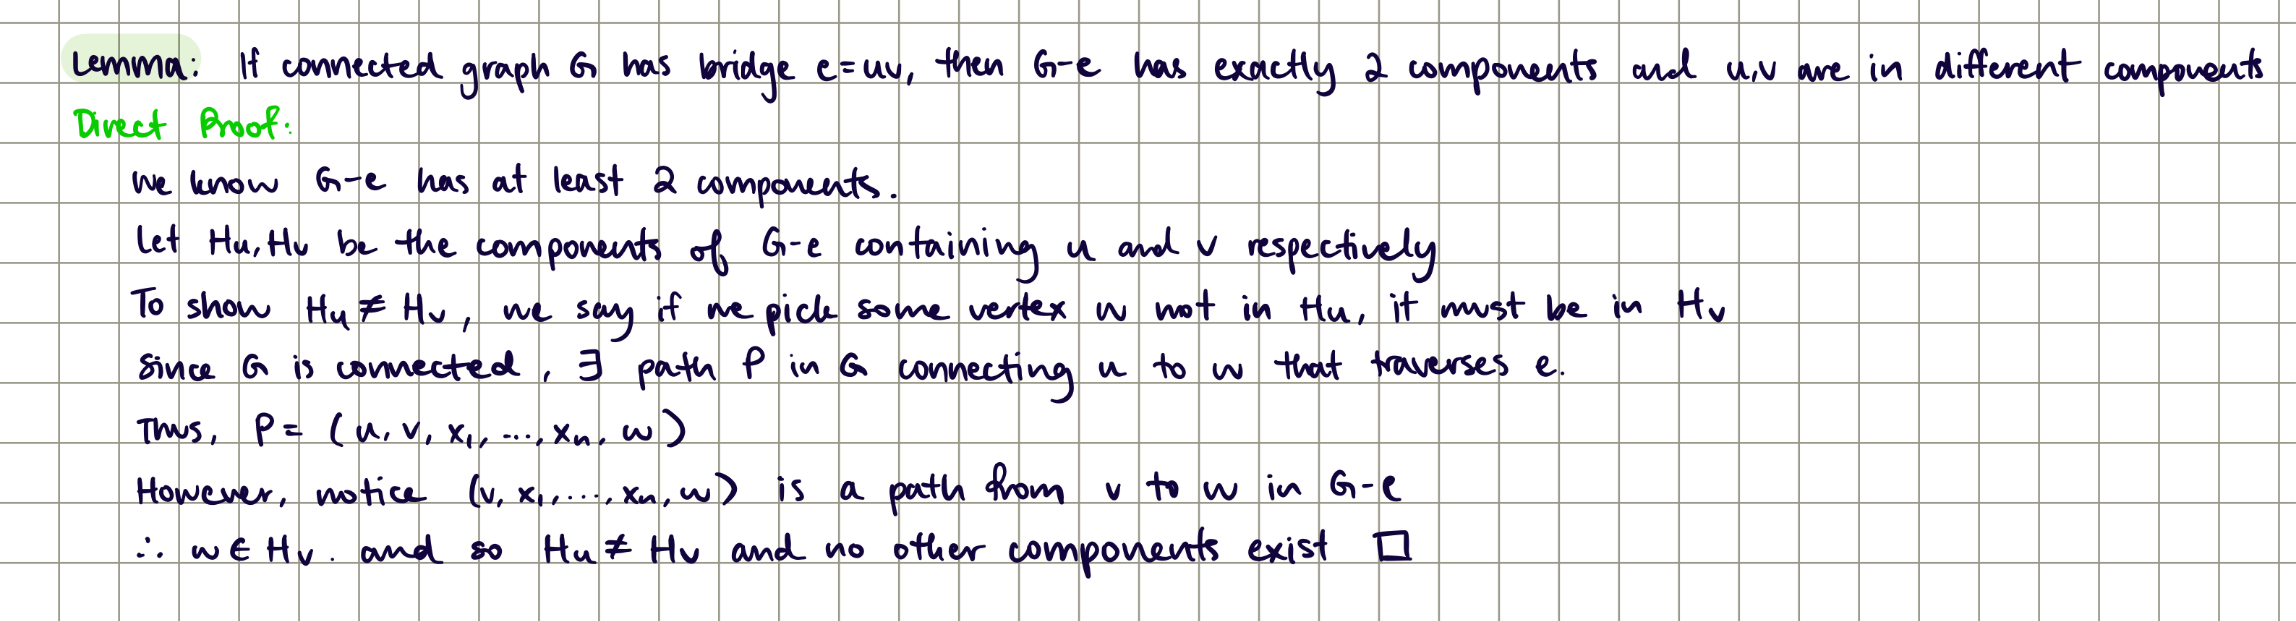 Lemma: If connected graph G has bridge e=uv, then G-e has exactly 2 components and u,v are in different components
Direct Proof:
We know G-e has at least 2 components.
Let Hu, Hv be the components of G-e containing u and v respectively
To show Hu ≠ Hv, we say if we pick some vertex w not in Hu, it must be in Hv
Since G is connected, ∃ path P in G connecting u to w that traverses e.
Thus, P = (u, v, x₁, ..., xₙ, w)
However, notice (v, x₁, ..., xₙ, w) is a path from v to w in G-e
∴ w ∈ Hv. and so Hu ≠ Hv and no other components exist □